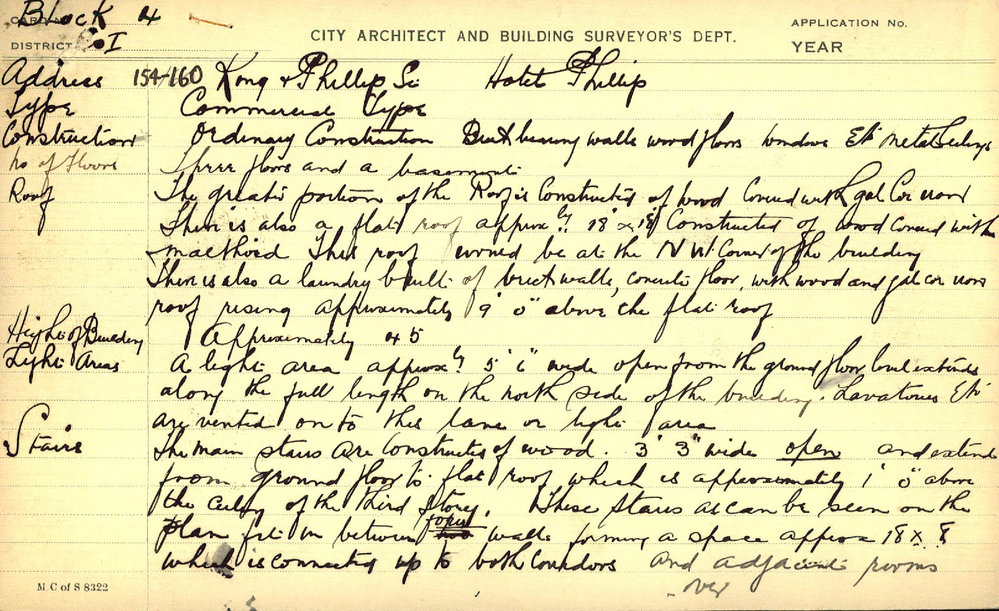 Block 4
CARD No.
DISTRICT Co I
CITY ARCHITECT AND BUILDING SURVEYOR'S DEPT.
APPLICATION No.
YEAR
Address 154-160 King & Phillip St Hotel Phillip
Type Commercial Type
Construction Ordinary Construction Brick bearing walls wood floors windows Etc Metal Ceilings
No of Floors Three floors and a basement
Roof The greater portion of the Roof is Constructed of wood Covered with gal Cor iron
There is also a flat roof approx ly 18' x 18' Constructed of wood Covered with
malthoid This roof would be at the N W Corner of the building
There is also a laundry built of brick walls, concrete floor, with wood and gal cor iron
roof rising approximately 9' 0" above the flat roof
Height of Building Approximately 45
Light Areas A light area approx ly 5' 6" wide open from the ground floor level extends
along the full length on the north side of the building. Lavatories Etc
are vented on to this lane or light area
Stairs The main stairs are constructed of wood. 3' 3" wide open and extend
from ground floor to flat roof which is approximately 1' 0" above
the ceiling of the third storey. These stairs as can be seen on the
Plan fit in between four walls forming a space approx 18 x 8
which is connected up to both corridors and adjacent rooms
over
M C of S 8322